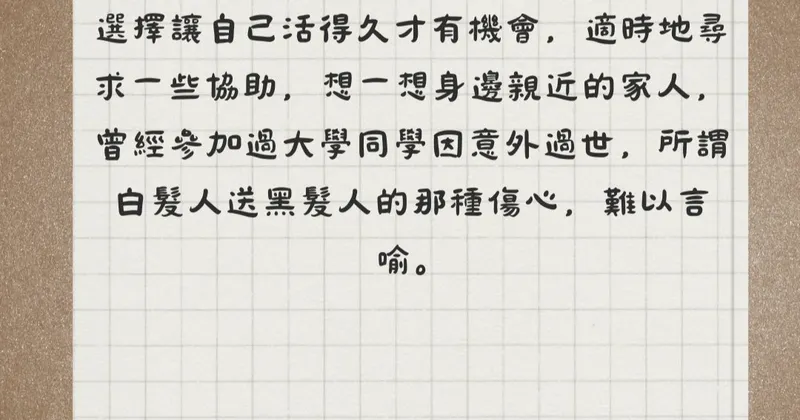 選擇讓自己活得久才有機會，適時地尋
求一些協助，想一想身邊親近的家人，
曾經參加過大學同學因意外過世，所謂
白髮人送黑髮人的那種傷心，難以言
喻。